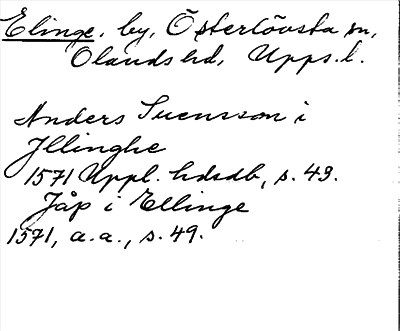 Elinge, by, Österlövsta sn,
Olands hd, Upps. l.
Anders Suensson i
Jllinghe
1571 Uppl. hdsdb, s. 43.
Jåp i Ellinge
1571, a.a., s. 49.